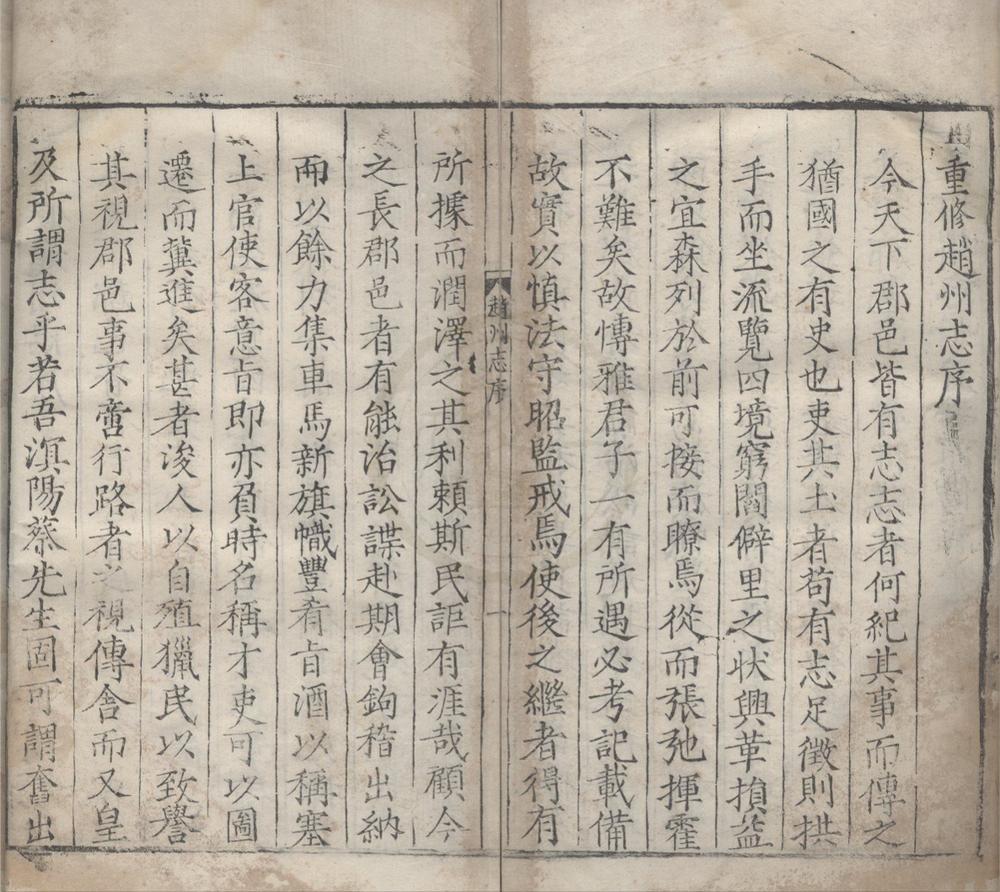 重修趙州志序
今天下郡邑皆有志志者何紀其事而傳之
猶國之有史也吏其土者苟有志足徵則拱
手而坐流覽四境窮閻僻里之狀興革損益
之宜森列於前可接而瞭焉從而張弛揮霍
不難矣故愽雅君子一有所遇必考記載備
故實以慎法守昭監戒焉使後之繼者得有
趙州志序
一
所據而潤澤之其利賴斯民詎有涯哉顧今
之長郡邑者有能治訟諜赴期會鉤稽出納
而以餘力集車馬新旗幟豐肴旨酒以稱塞
上官使客意旨即亦負時名稱才吏可以圖
遷而冀進矣甚者浚人以自殖獵民以致譽
其視郡邑事不啻行路者之視傳舍而又皇
及所謂志乎若吾滇陽蔡先生固可謂奮出